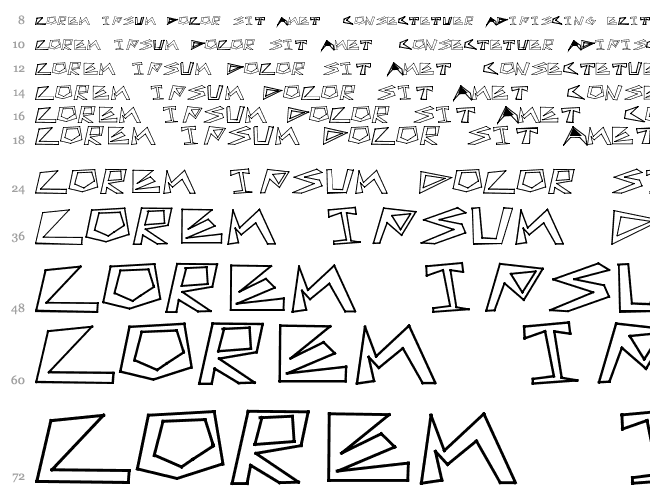 8 LOREM IPSUM DOLOR SIT AMET CONSECTETUER ADIPISCING ELIT
10 LOREM IPSUM DOLOR SIT AMET CONSECTETUER ADIPISC
12 LOREM IPSUM DOLOR SIT AMET CONSECTETUE
14 LOREM IPSUM DOLOR SIT AMET CONSE
16 LOREM IPSUM DOLOR SIT AMET CO
18 LOREM IPSUM DOLOR SIT AMET
24 LOREM IPSUM DOLOR SI
36 LOREM IPSUM D
48 LOREM IPSU
60 LOREM IP
72 LOREM I